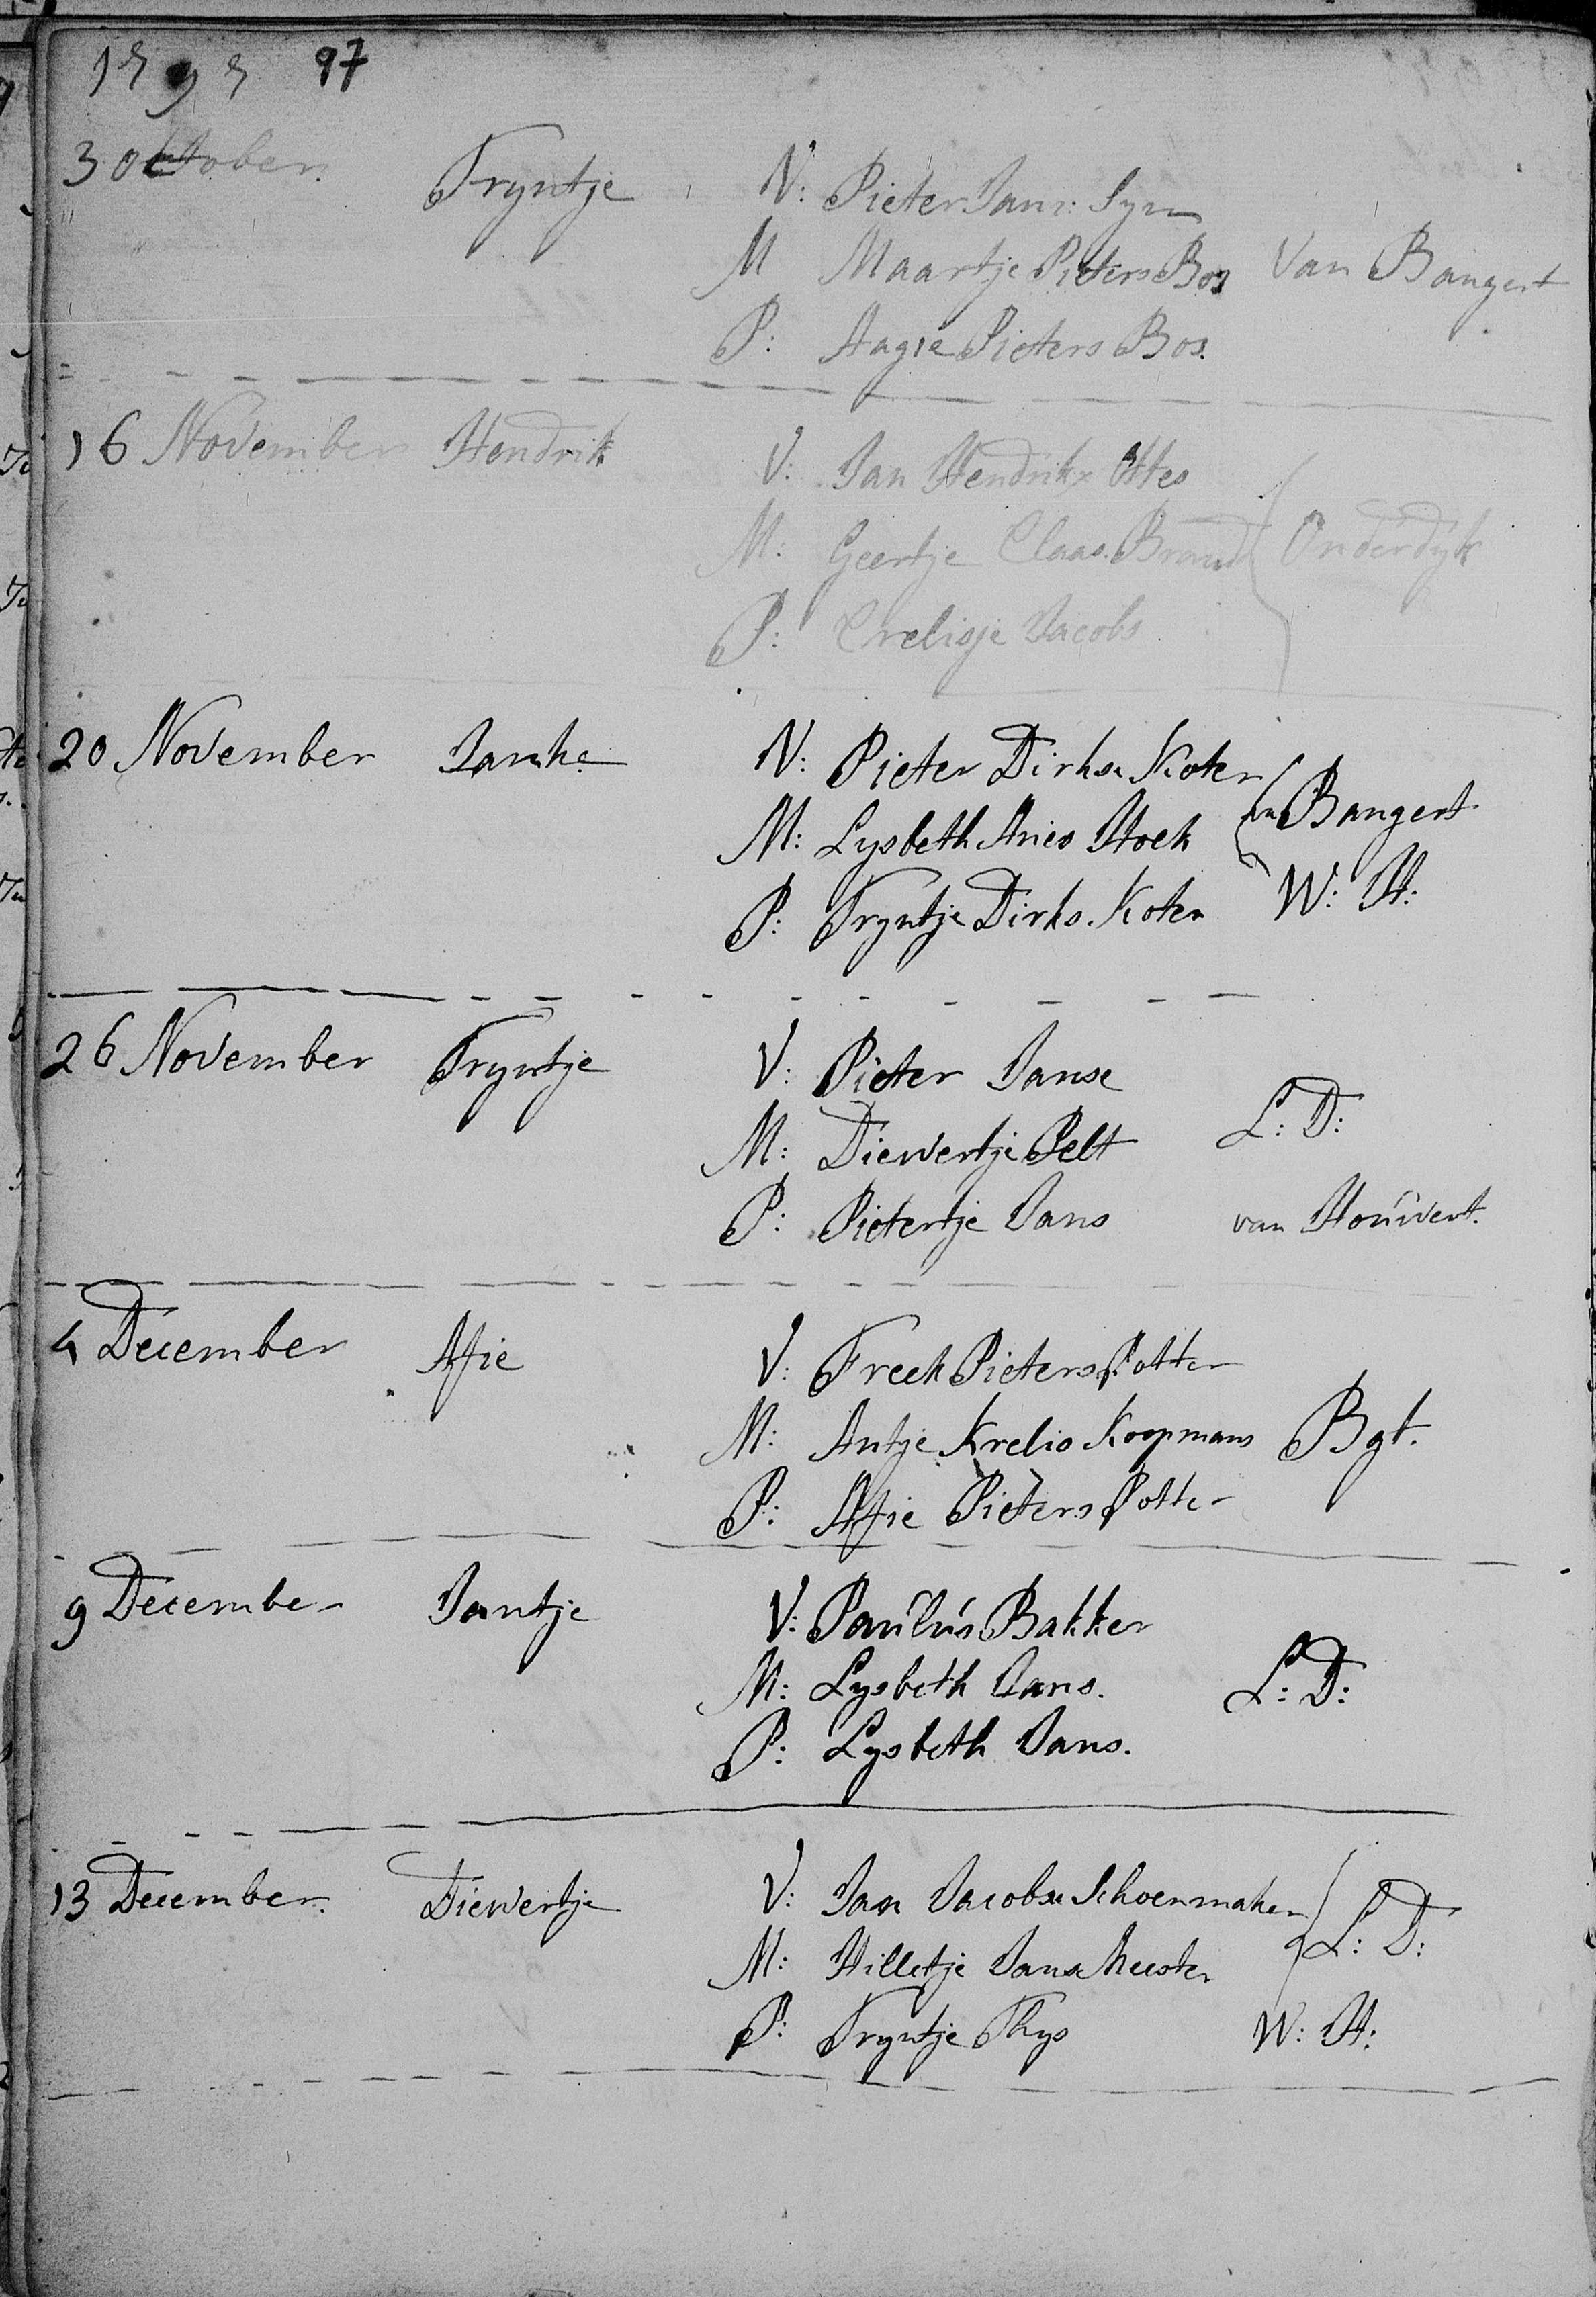 1797 97
3 October Tryntje V: Pieter Jans: Sym
M Maartje Pieters Bos Van Bangert
P: Aagie Pieters Bos.
16 November Hendrik V: Jan Hendriks Ottes
M: Geertje Claas. Brand Onderdyk
P: Crelisje Jacobs
20 November Janke V: Pieter Dirkse Koter
M: Lysbeth Aries Hoek Bangert
P: Tryntje Dirks. Koter W: H:
26 November Tryntje V: Pieter Janse
M: Diewertje Pelt L: D:
P: Pietertje Jans van Houwert.
4 December Afie V: Freek Pieters Potter
M: Antje Krelis Koopmans Bgt.
P: Afie Pieters Potter
9 December Jantje V: Paulus Bakker
M: Lysbeth Jans. L: D:
P: Lysbeth Jans.
13 December. Diewertje V: Jan Jacobse Schoenmaker
M: Hilletje Janse Meester L: D:
P: Tryntje Thys W: H: